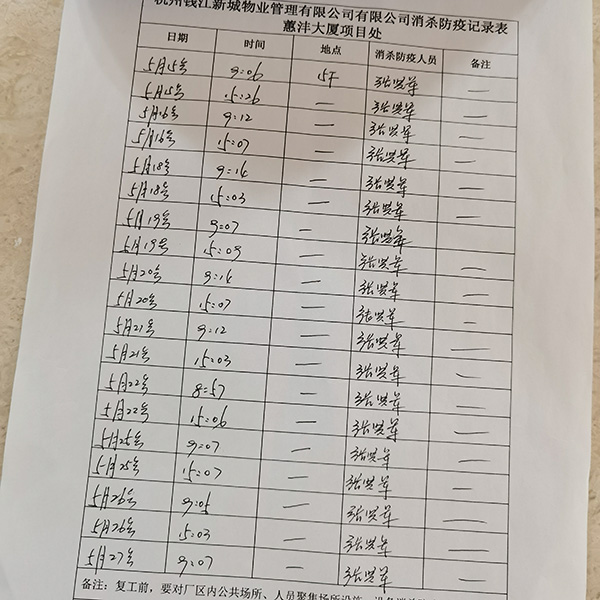 杭州钱江新城物业管理有限公司有限公司消杀防疫记录表
蕙沣大厦项目处
日期 时间 地点 消杀防疫人员 备注
5月15号 9:06 5F 张贤军 —
5月15号 15:26 — 张贤军 —
5月16号 9:12 — 张贤军 —
5月16号 15:07 — 张贤军 —
5月18号 9:14 — 张贤军 —
5月18号 15:03 — 张贤军 —
5月19号 9:07 — 张贤军 —
5月19号 15:09 — 张贤军 —
5月20号 9:14 — 张贤军 —
5月20号 15:07 — 张贤军 —
5月21号 9:12 — 张贤军 —
5月21号 15:03 — 张贤军 —
5月22号 8:57 — 张贤军 —
5月22号 15:06 — 张贤军 —
5月25号 9:07 — 张贤军 —
5月25号 15:07 — 张贤军 —
5月26号 9:05 — 张贤军 —
5月26号 15:03 — 张贤军 —
5月27号 9:07 — 张贤军 —
备注：复工前，要对厂区内公共场所、人员聚集场所设施、设备消